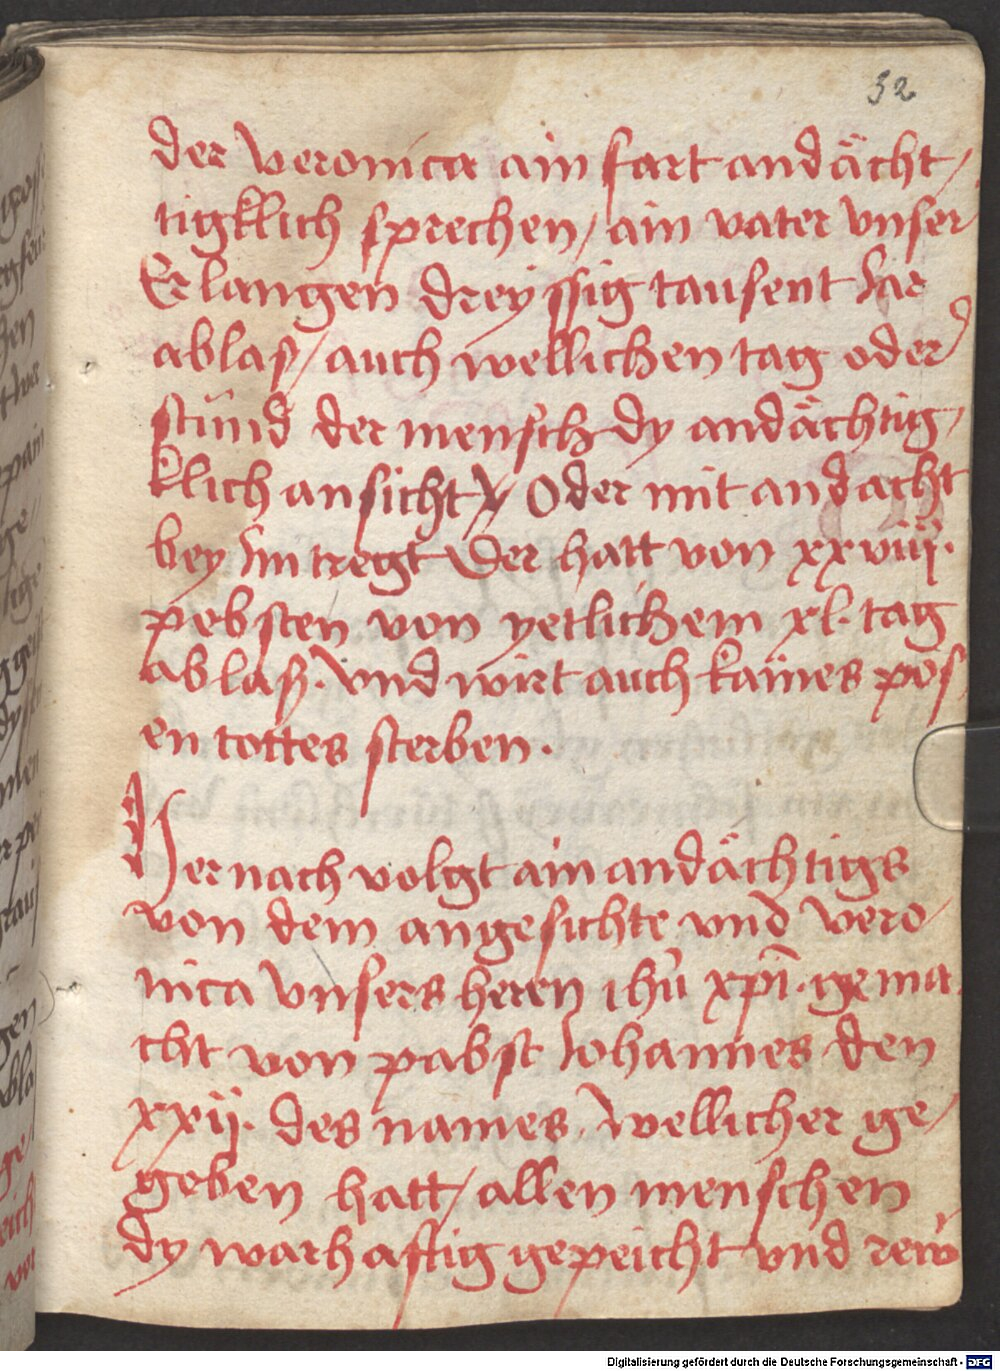 32
der veronica ain fart andächt/
tigklich sprechen/ ain vater vnser
Erlangen dreyssig tausent Jar
ablaß/ auch wellichen tag oder
stund der mensch dy andächtig/
klich ansicht/ Oder mit andacht
bey Im tregt Der hatt von xxviij.
pebsten von yetlichem xl. tag
ablaß. vnd wirt auch kaines pos
en tottes sterben.
Hernach volgt ain andächtigs
von dem angesichte vnd vero/
nica vnsers heren ihū xp̄i. gema
cht von pabst Johannes den
xxij. des names. wellicher ge/
geben hatt/ allen menschen
dy warhaftig gepeicht vnd rew
Digitalisierung gefördert durch die Deutsche Forschungsgemeinschaft - DFG